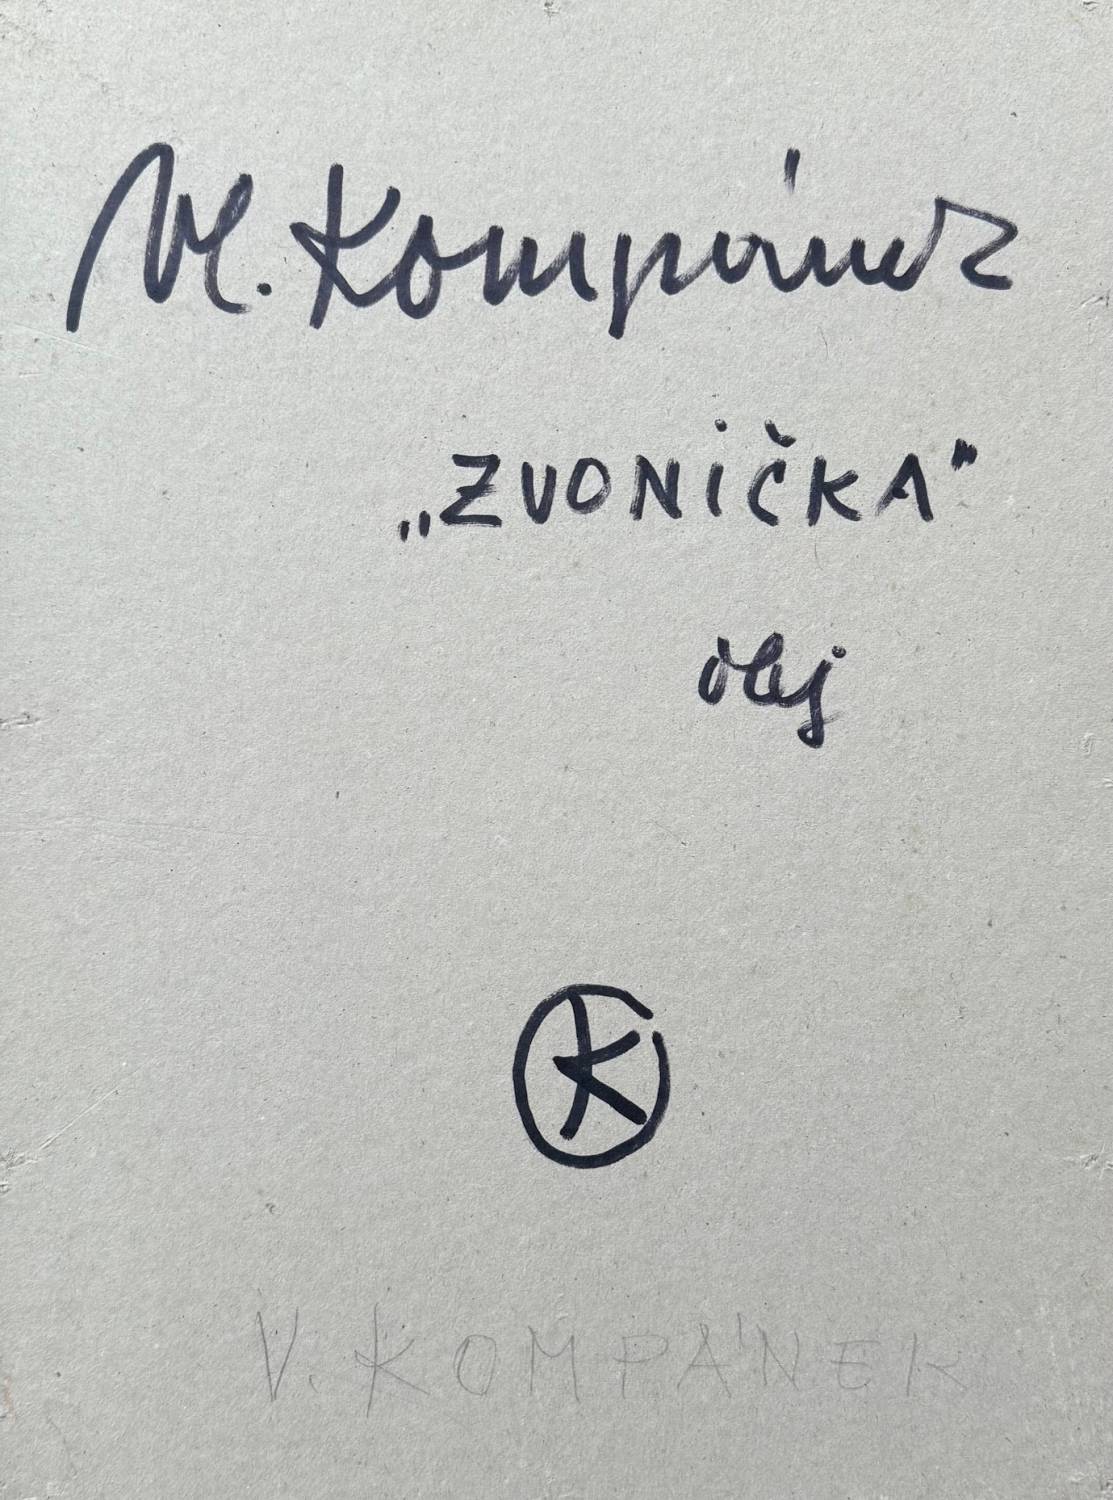 Vl. Kompánek
„ZVONIČKA"
olej
K
V. KOMPÁNEK